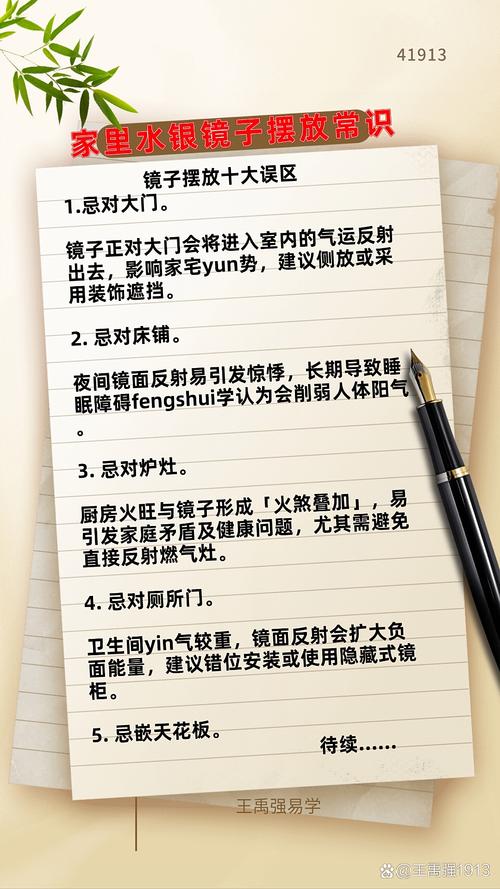 41913
家里水银镜子摆放常识
镜子摆放十大误区
1.忌对大门。
镜子正对大门会将进入室内的气运反射
出去，影响家宅yun势，建议侧放或采
用装饰遮挡。
2. 忌对床铺。
夜间镜面反射易引发惊悸，长期导致睡
眠障碍fengshui学认为会削弱人体阳气
。
3. 忌对炉灶。
厨房火旺与镜子形成「火煞叠加」，易
引发家庭矛盾及健康问题，尤其需避免
直接反射燃气灶。
4. 忌对厕所门。
卫生间yin气较重，镜面反射会扩大负
面能量，建议错位安装或使用隐藏式镜
柜。
5. 忌嵌天花板。
待续......
王禹强易学
王禹强1913